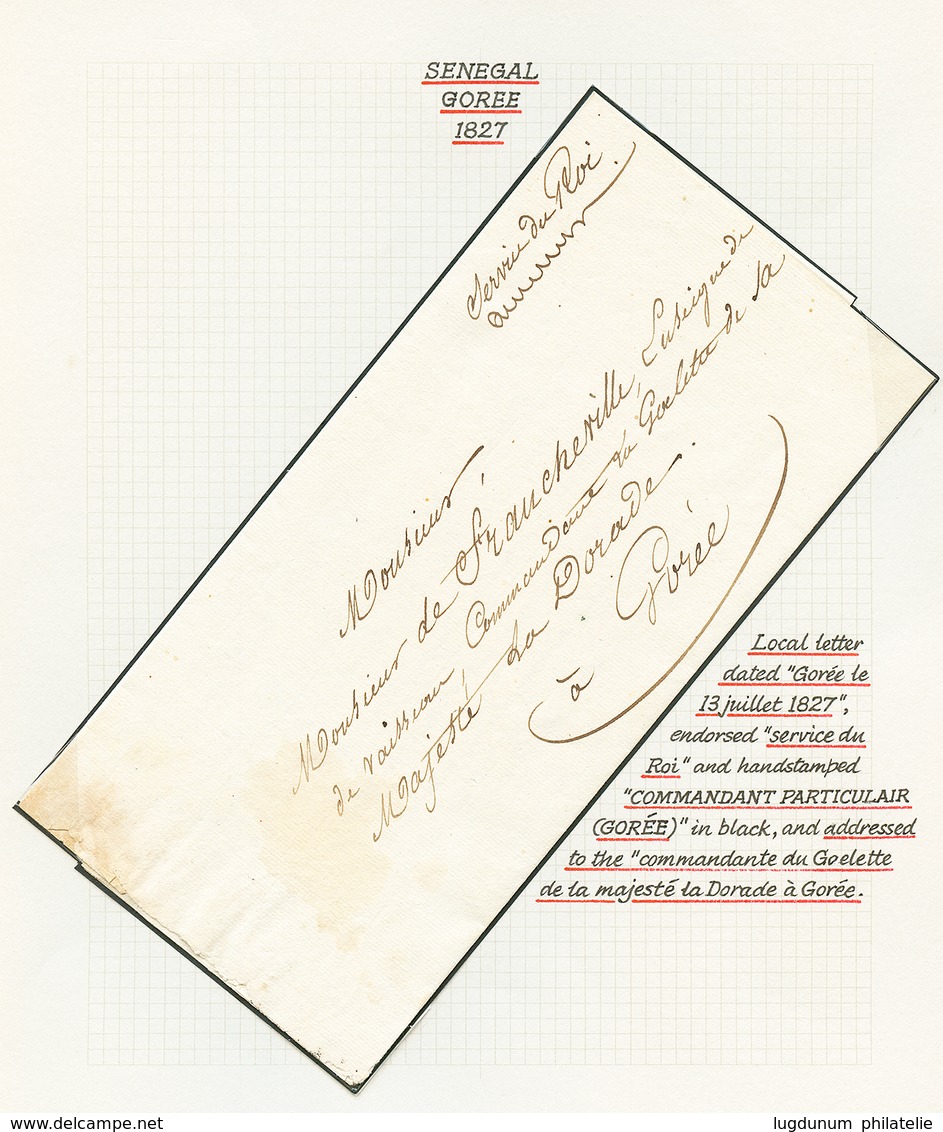 SENEGAL
GOREE
1827
Service du Roi
Monsieur,
Monsieur de Francheville, Enseigne de
de vaisseau, Commandant la Goelette de Sa
Majesté, La Dorade.
à Gorée
Local letter
dated "Gorée le
13 juillet 1827",
endorsed "service du
Roi" and handstamped
"COMMANDANT PARTICULAIR
(GORÉE)" in black, and addressed
to the "commandante du Goelette
de la majesté la Dorade à Gorée.
www.delcampe.net
lugdunum philatelie